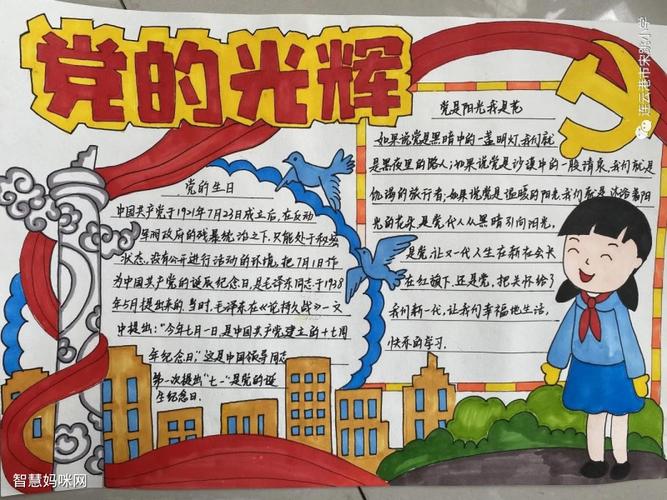 党的光辉
党的生日
中国共产党于1921年7月23日成立后,在反动
军阀政府的残暴统治之下,只能处于秘密
状态,没有公开进行活动的环境,把7月1日作
为中国共产党的诞辰纪念日,是毛泽东同志于1938
年5月提出来的,当时,毛泽东在《论持久战》一文
中提出:"今年七月一日,是中国共产党建立的十七周
年纪念日,"这是中国领导同志
第一次提出"七一"是党的诞
生纪念日.
党是阳光我是花
如果说党是黑暗中的一盏明灯,我们就
是黑夜里的路人;如果说党是沙漠中的一股清泉,我们就是
饥渴的旅行者;如果说党是温暖的阳光,我们就是沐浴着阳
光的花朵.是党,代人从黑暗引向阳光,
是党,让一代人生在新在会长
在红旗下,还是党,把关怀给了
我们新一代,让我们幸福地生活,
快乐的学习.
连云港市宋跳小学
智慧妈咪网